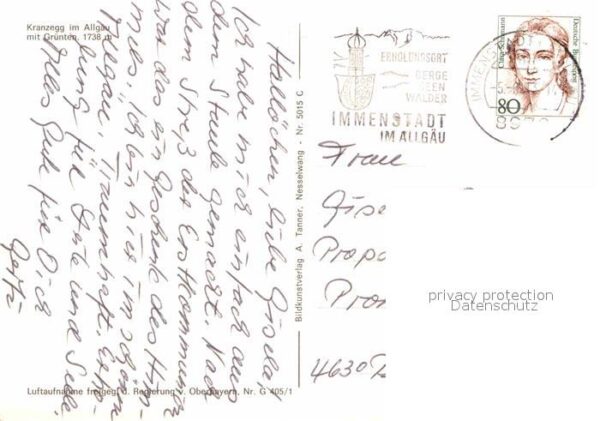 Kranzegg im Allgäu
mit Grünten, 1738 m
Hallöchen, liebe Gisela!
Ich habe mich einfach aus
dem Staube gemacht. Nach
dem Streß der Erstkommunion
war das ein Geschenk des Him-
mels. Ich bin hier im schönen
Allgäu. Traumhaft. Erho-
lung für Leib und Seele.
Alles Gute für Dich
Bildkunstverlag A. Tanner, Nesselwang - Nr. 5015 C
Luftaufnahme freigeg. d. Regierung v. Oberbayern, Nr. G 405/1
ERHOLUNGSORT
BERGE
SEEN
WÄLDER
IMMENSTADT
IM ALLGÄU
IMMENS
Deutsche Bundespost
Clara Schumann
80
Frau
Gise
Prop
Pro
4630
privacy protection
Datenschutz